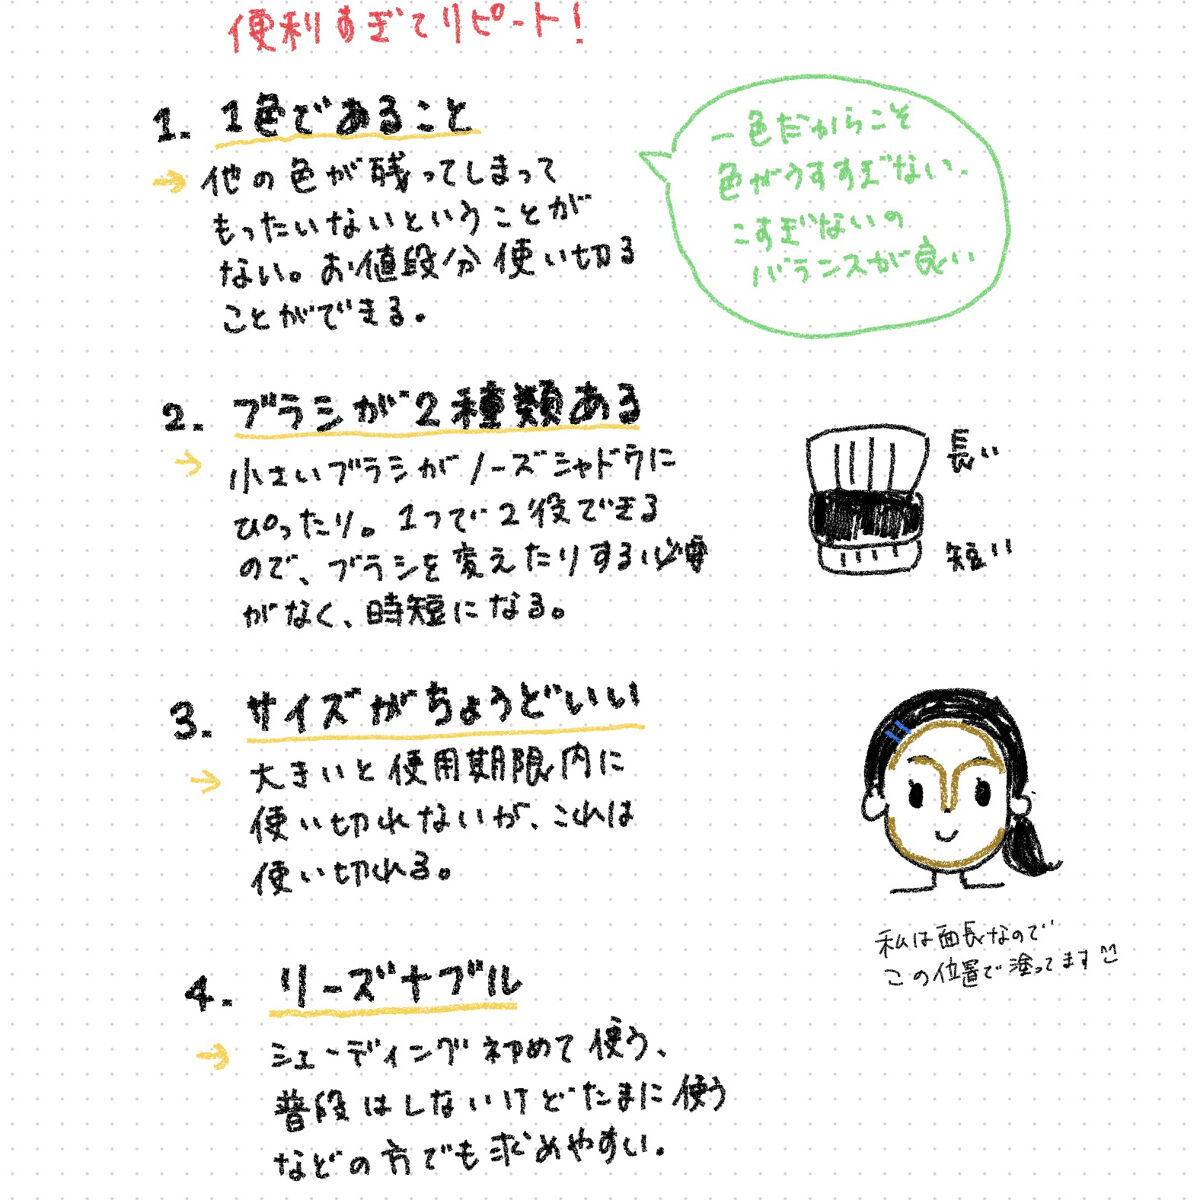 便利すぎてリピート!
1. 1色であること
→ 他の色が残ってしまって
もったいないということが
ない。お値段分使い切る
ことができる。
一色だからこそ
色がうすすぎない、
こすぎないの
バランスが良い
2. ブラシが2種類ある
→ 小さいブラシがノーズシャドウに
ぴったり。1つで2役できる
ので、ブラシを変えたりする必要
がなく、時短になる。
長い
短い
3. サイズがちょうどいい
→ 大きいと使用期限内に
使い切れないが、これは
使い切れる。
私は面長なので
この位置で塗ってます
4. リーズナブル
→ シェーディング初めて使う、
普段はしないけどたまに使う
などの方でも求めやすい。